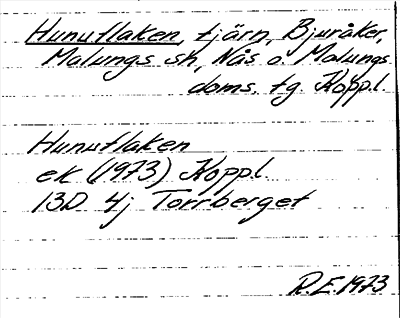 Hunuflaken, tjärn, Bjuråker,
Malungs sn, Nås o. Malungs
doms. tg. Koppl.
Hunuflaken
ek (1973) Koppl.
13D 4j Torrberget
R.E. 1973